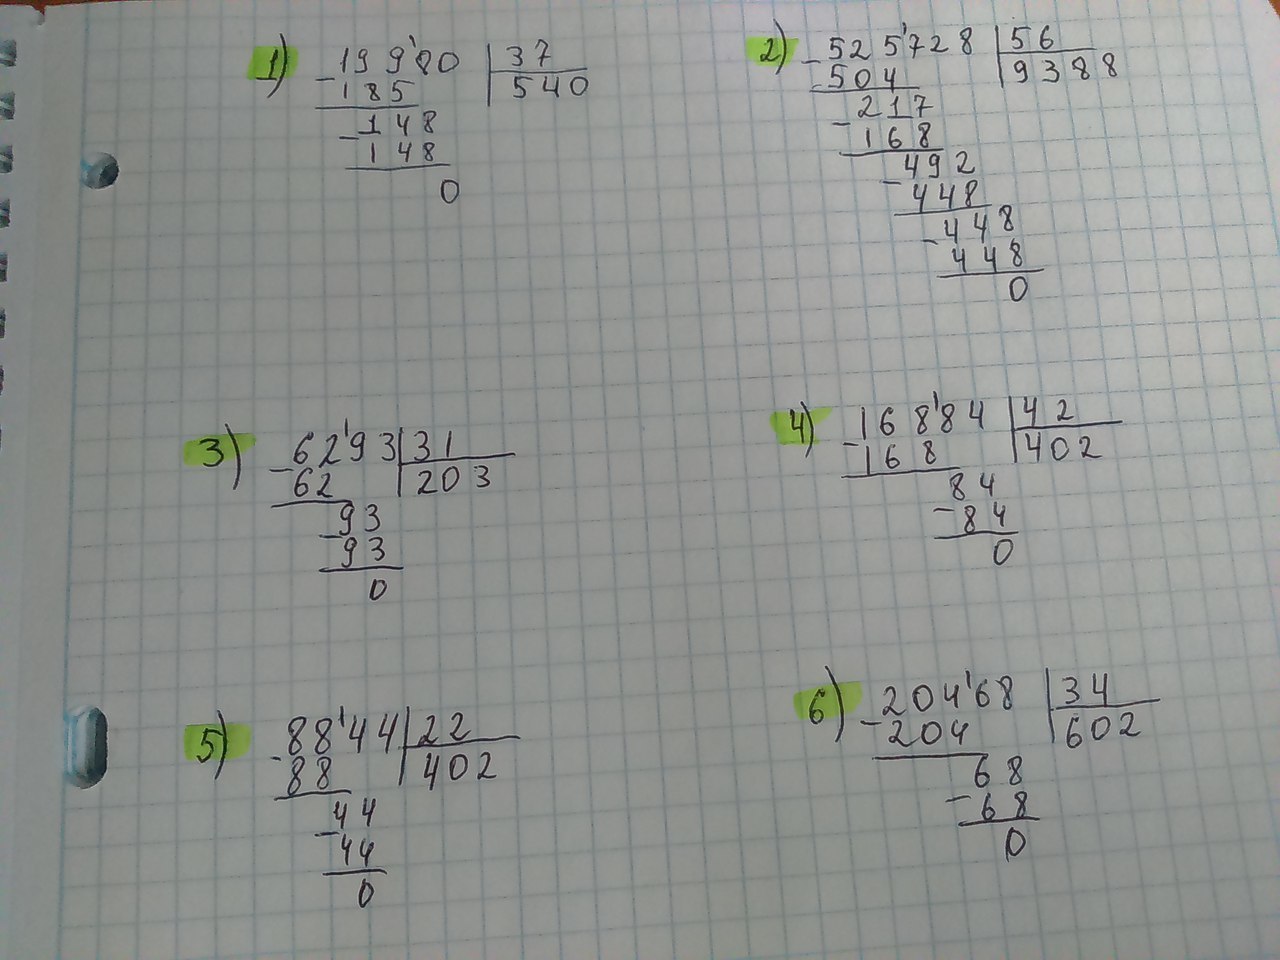 1) - 19 9'80 | 37
185 | 540
- 148
148
0
2) - 52 5'728 | 56
504 | 9388
- 217
168
- 492
448
- 448
448
0
3) - 62'93 | 31
62 | 203
- 93
93
0
4) - 168'84 | 42
168 | 402
84
- 84
0
5) - 88'44 | 22
88 | 402
- 44
44
0
6) - 204'68 | 34
204 | 602
68
- 68
0